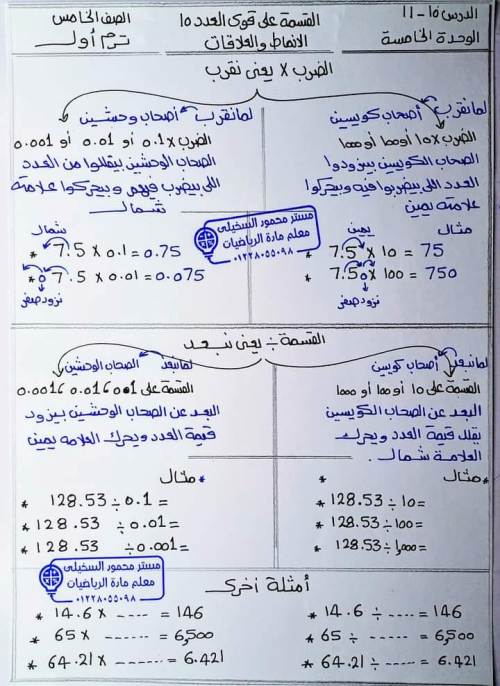 الدرس ١٥ - ١١
الوحدة الخامسة
القسمة على قوى العدد ١٥
الانماط والعلاقات
الصف الخامس
ترم أول
الضرب x يعنى نقرب
لما نقرب أصحاب كويسين
الضرب x ١٥ أو ١٥٥ أو ١٥٥٥
الصحاب الكويسين بيزودوا
العدد اللى بيضربوا فيه ويحركوا
علامته يمين
مثال
يمين
* 7.5 x 10 = 75
* 7.50 x 100 = 750
نزود صفر
لما نقرب أصحاب وحشين
الضرب x 0.1 أو 0.01 أو 0.001
الصحاب الوحشين بيقللوا من العدد
اللى بيضرب فيهم ويحركوا علامتة
شمال
شمال
* 7.5 x 0.1 = 0.75
* 0 7.5 x 0.01 = 0.075
نزود صفر
مستر محمود السخيلى
معلم مادة الرياضيات
٠١٢٢٨٠٥٥٠٩٨
القسمة ÷ يعنى نبعد
لما نبعد أصحاب كويسين
القسمة على ١٥ أو ١٥٥ أو ١٥٥٥
البعد عن الصحاب الكويسين
يقلل قيمة العدد ويحرك
العلامة شمال.
* مثال
* 128.53 ÷ 10 =
* 128.53 ÷ 100 =
* 128.53 ÷ 1,000 =
لما نبعد الصحاب الوحشين
القسمة على 0.1 6 0.01 6 0.001
البعد عن الصحاب الوحشين بيزود
قيمة العدد ويحرك العلامه يمين
* مثال
* 128.53 ÷ 0.1 =
* 128.53 ÷ 0.01 =
* 128.53 ÷ 0.001 =
مستر محمود السخيلى
معلم مادة الرياضيات
٠١٢٢٨٠٥٥٠٩٨
أمثلة أخرى
* 14.6 x ---- = 146
* 65 x ----- = 6,500
* 64.21 x ------ = 6.421
* 14.6 ÷ ---- = 146
* 65 ÷ ------ = 6,500
* 64.21 ÷ ---- = 6.421